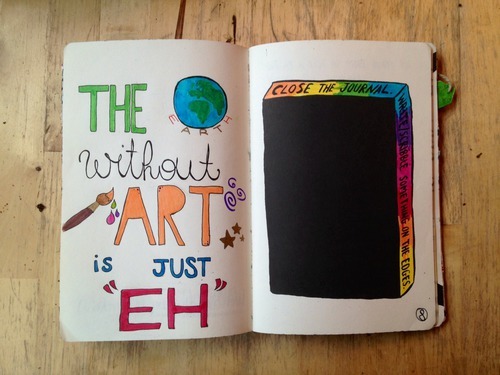 THE
EARTH
without
ART
is JUST
"EH"
CLOSE THE JOURNAL.
WRITE/SCRIBBLE SOMETHING ON THE EDGES.